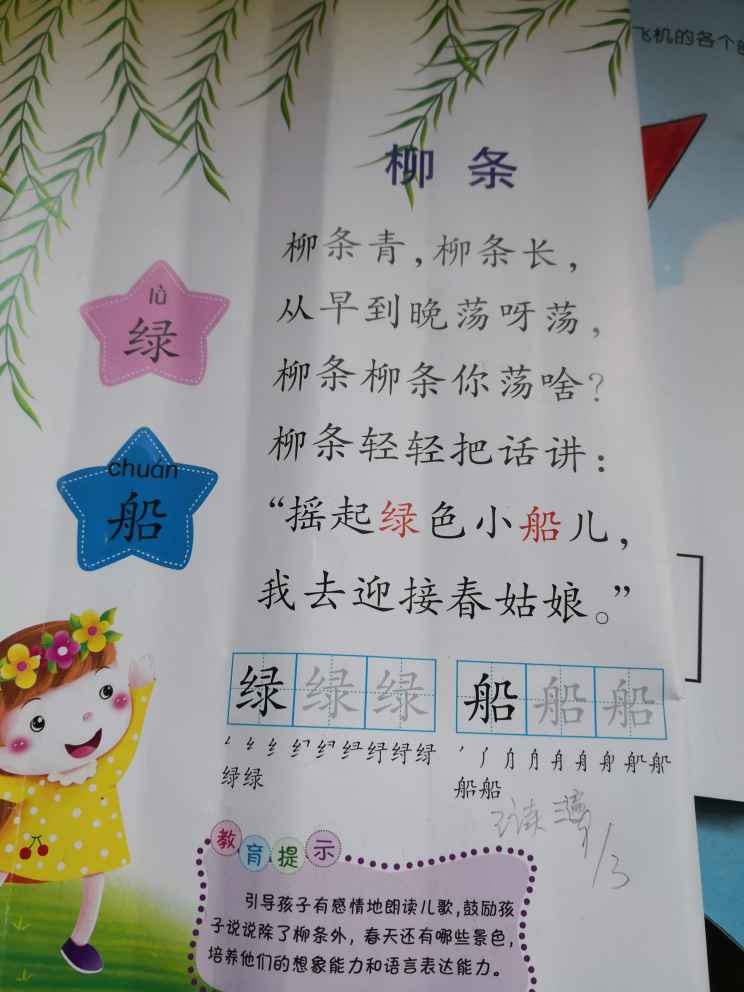 飞机的各个
柳条
柳条青，柳条长，
从早到晚荡呀荡，
柳条柳条你荡啥？
柳条轻轻把话讲：
“摇起绿色小船儿，
我去迎接春姑娘。”
lǜ
绿
chuán
船
绿绿绿
船船船
绿绿
船船
读三遍
1/3
教育提示
引导孩子有感情地朗读儿歌，鼓励孩
子说说除了柳条外，春天还有哪些景色，
培养他们的想象能力和语言表达能力。